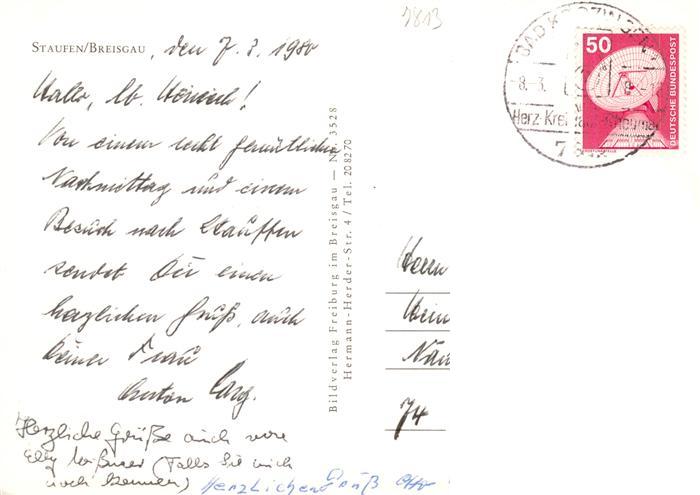 1813
STAUFEN/BREISGAU, den 7. 3. 1980
Hallo, lb. Heinrich!
Von einem recht gemütlichen
Nachmittag und einem
Besuch nach Stauffen
sendet Dir einen
herzlichen Gruß, auch
Deiner Frau
Anton
Herzliche Grüße auch von
Elly (Falls Sie mich
noch kennen) Herzlichen Gruß Otto
Bildverlag Freiburg im Breisgau — Nr. 3528
Hermann-Herder-Str. 4 / Tel. 208270
BAD KROZINGEN
8.-3.
Herz-Kreislauf-Rheuma
50
DEUTSCHE BUNDESPOST
Herrn
74